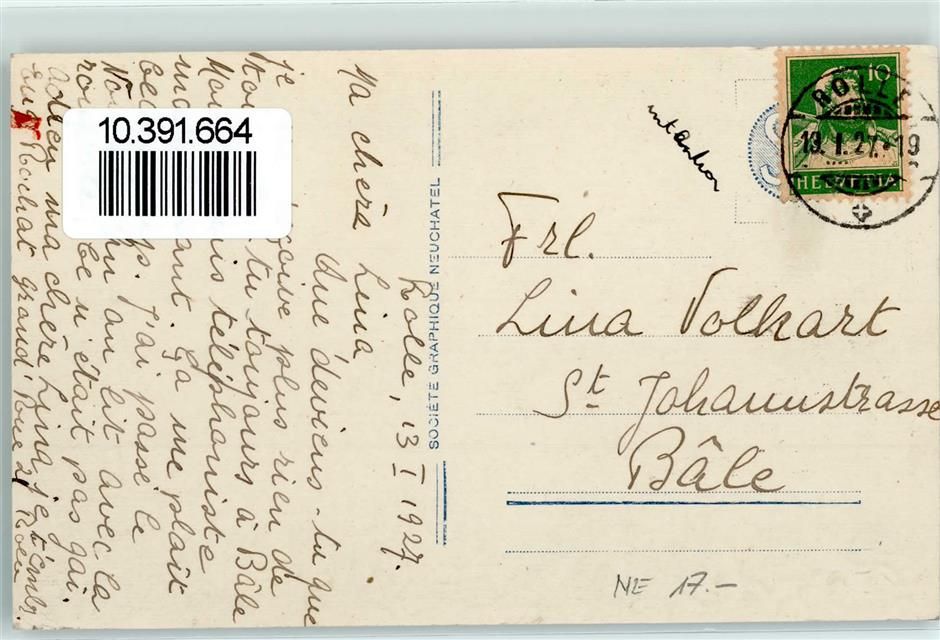 Rolle, 13 I 1927.
Ma chère
Lina
Que deviens-tu que
je çoise plus rien de
toi tu toujours à Bâle
Moi is téléphoniste
ant. Ça me plaît
be ps. J'ai passé le
No an au lit avec la
be n'était pas gai.
Adieu ma chère Lina, je t'embr.
Rochat Grand'Rue 21 Rolle.
10.391.664
SOCIÉTÉ GRAPHIQUE NEUCHATEL
10
HELVETIA
ROLLE
19. I. 27.-19
Frl.
Lina Volkart
St. Johannstrasse
Bâle
NE 17.-